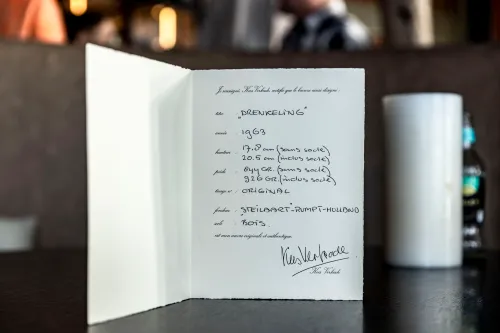 Je soussigné, Kees Verkade, certifie que le bronze ainsi désigné :
titre : "DRENKELING"
année : 1963
hauteur : 17.8 cm (sans socle)
20.5 cm (inclus socle)
poids : 644 GR. (sans socle)
926 GR. (inclus socle)
tirage n° : ORIGINAL
fondeur : "STEYLAART"-RUMPT-HOLLAND
socle : BOIS.
est mon œuvre originale et authentique.
Kees Verkade
Kees Verkade